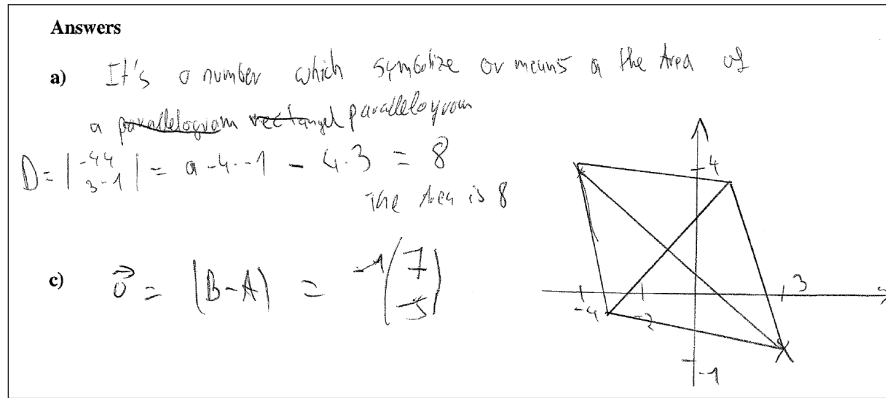 Answers
a) It's a number which symbolize or means a the Area of
a parallelogram rectangel parallelogram
D = | -4 4 | = -4 · -1 - 4 · 3 = 8
3 -1
The Area is 8
c) = (B-A) = -1 ( 7
-5 )
4
-4 -2 3
-1